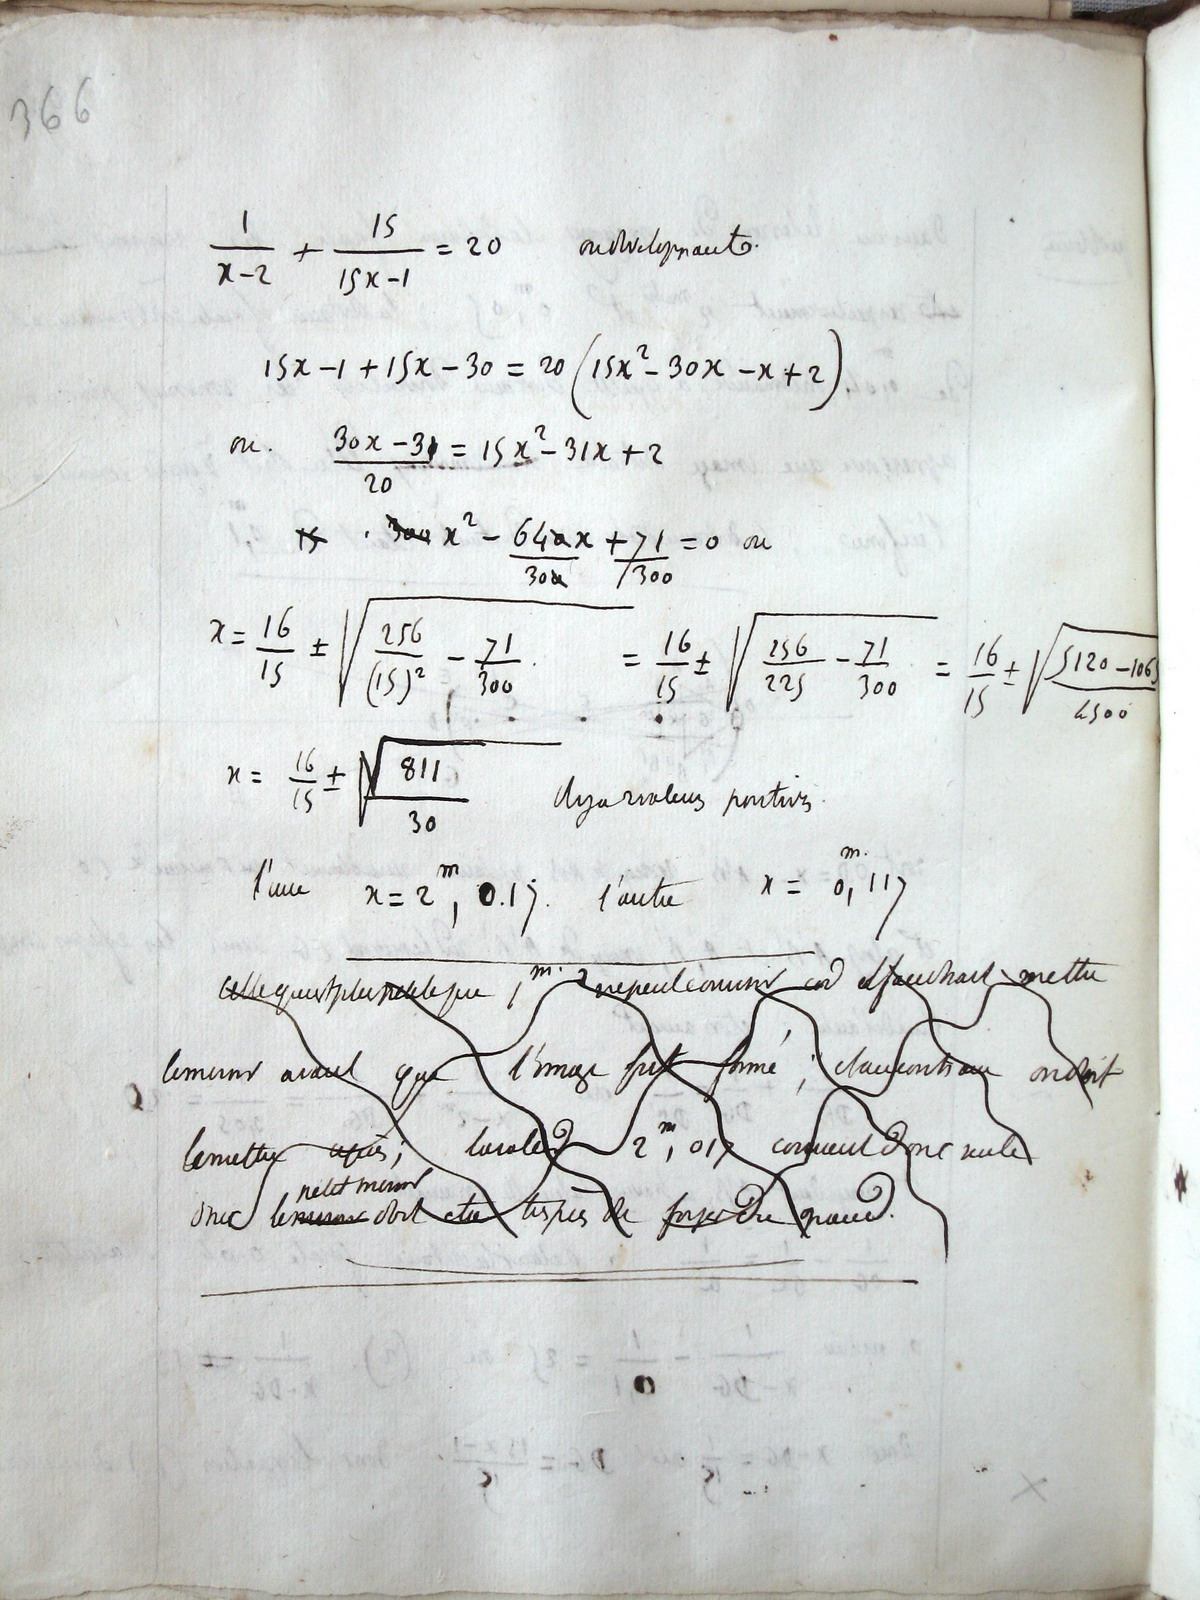 366
1/(x-2) + 15/(15x-1) = 20 ou developpant
15x-1+15x-30 = 20(15x²-30x-x+2)
ou. (30x-31)/20 = 15x²-31x+2
x² - 640x/300 + 71/300 = 0 ou
x = 16/15 ± √(256/(15)² - 71/300) = 16/15 ± √(256/225 - 71/300) = 16/15 ± √((5120-1065)/4500)
x = 16/15 ± √811/30 il y a 2 valeurs positives.
l'une x = 2m,017. l'autre x = 0m,117
celle qui est plus petite que 1m. ne peut convenir car il faudrait mettre
le miroir avant que l'image fut formé; et au contraire on doit
le mettre après; la valeur 2m,017 convient donc seule
donc le petit miroir doit etre très près de foyer du grand.